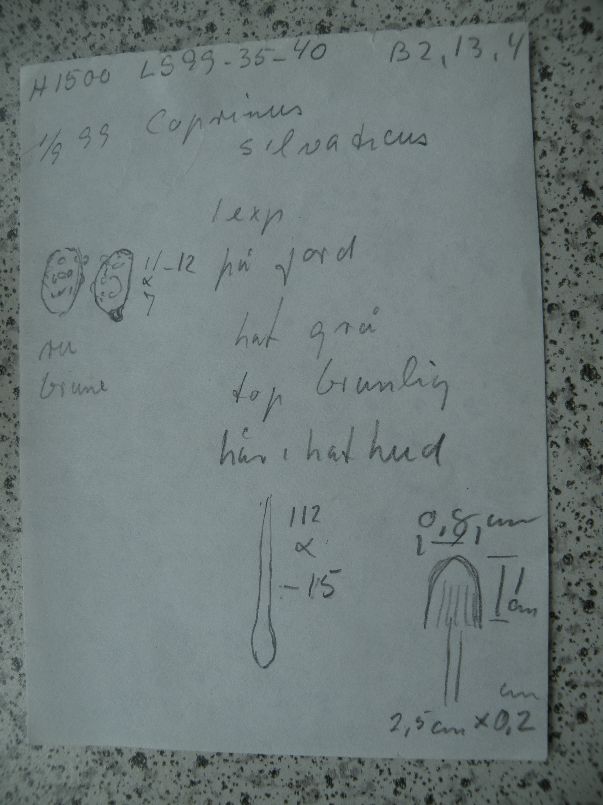 H1500 LS99-35-40 B2,13,4
1/9 99 Coprinus
silvaticus
1 exp.
på jord
11-12
x
7
hat grå
ru
brune
top brunlig
hår i hathud
112
x
-15
0,8 cm
1,1
cm
cm
2,5cm x 0,2